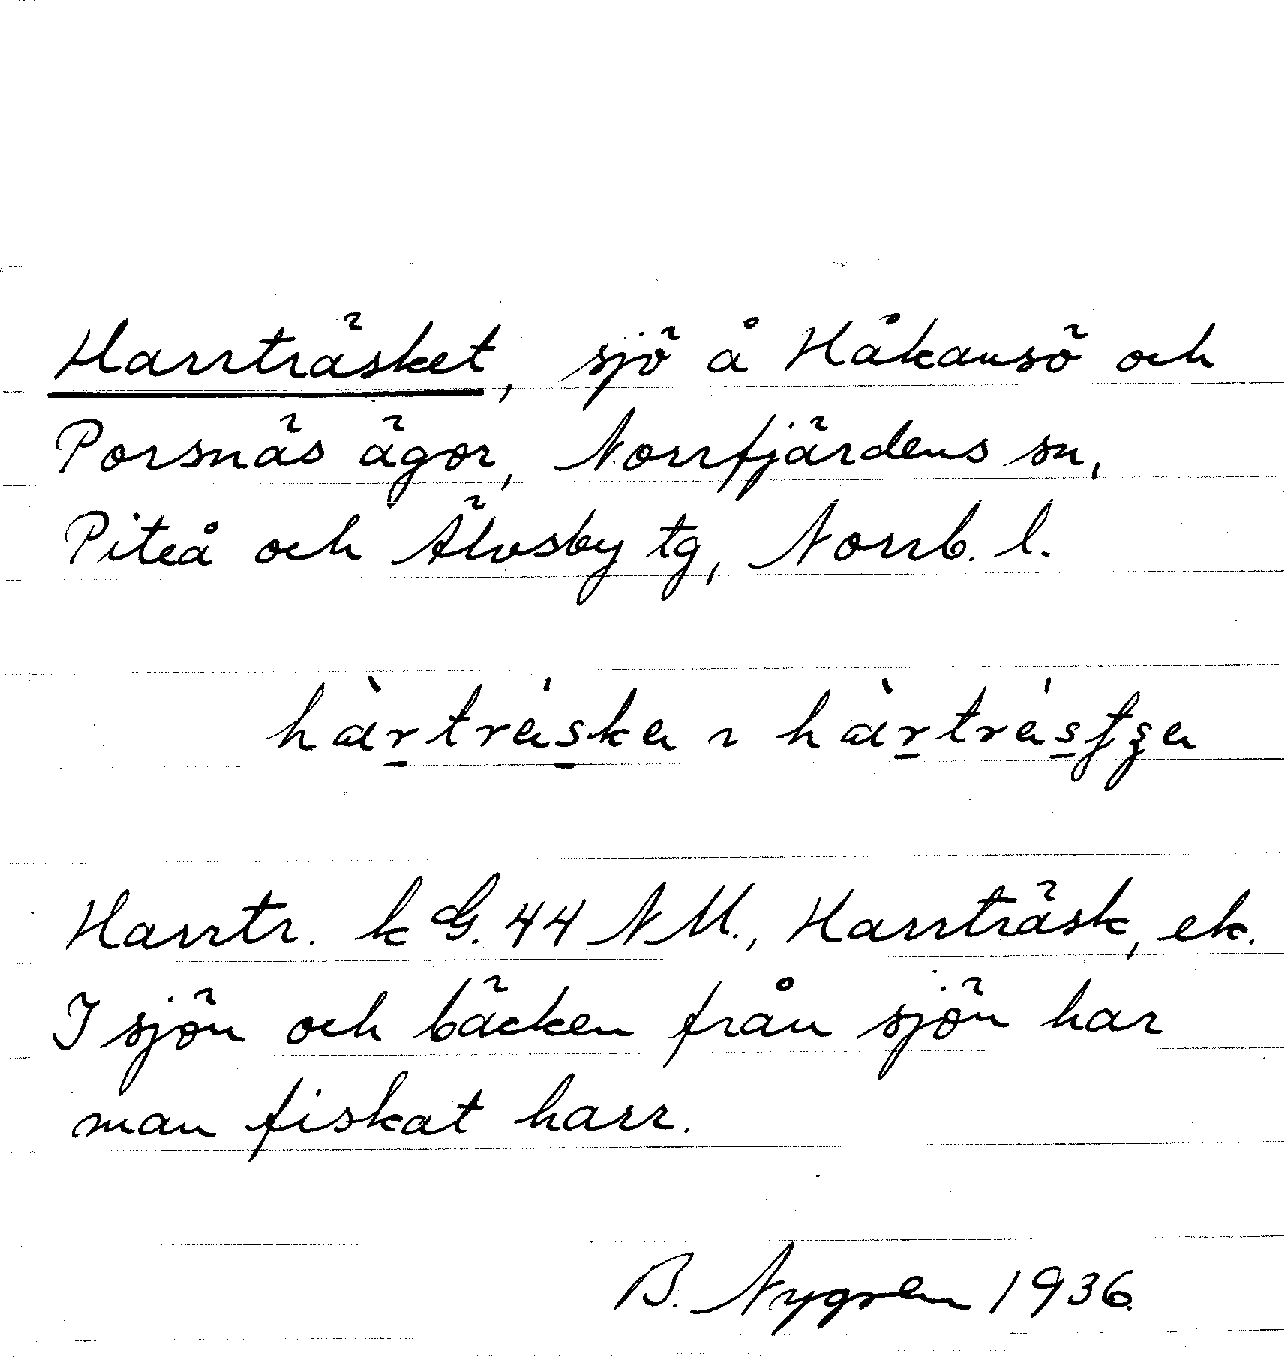 Harrträsket, sjö å Håkansö och
Porsnäs ägor, Norrfjärdens sn,
Piteå och Älvsby tg, Norrb. l.
Harrtr. k G. 44 NM., Harrträsk, ek.
I sjön och bäcken från sjön har
man fiskat harr.
B. Nygren 1936.